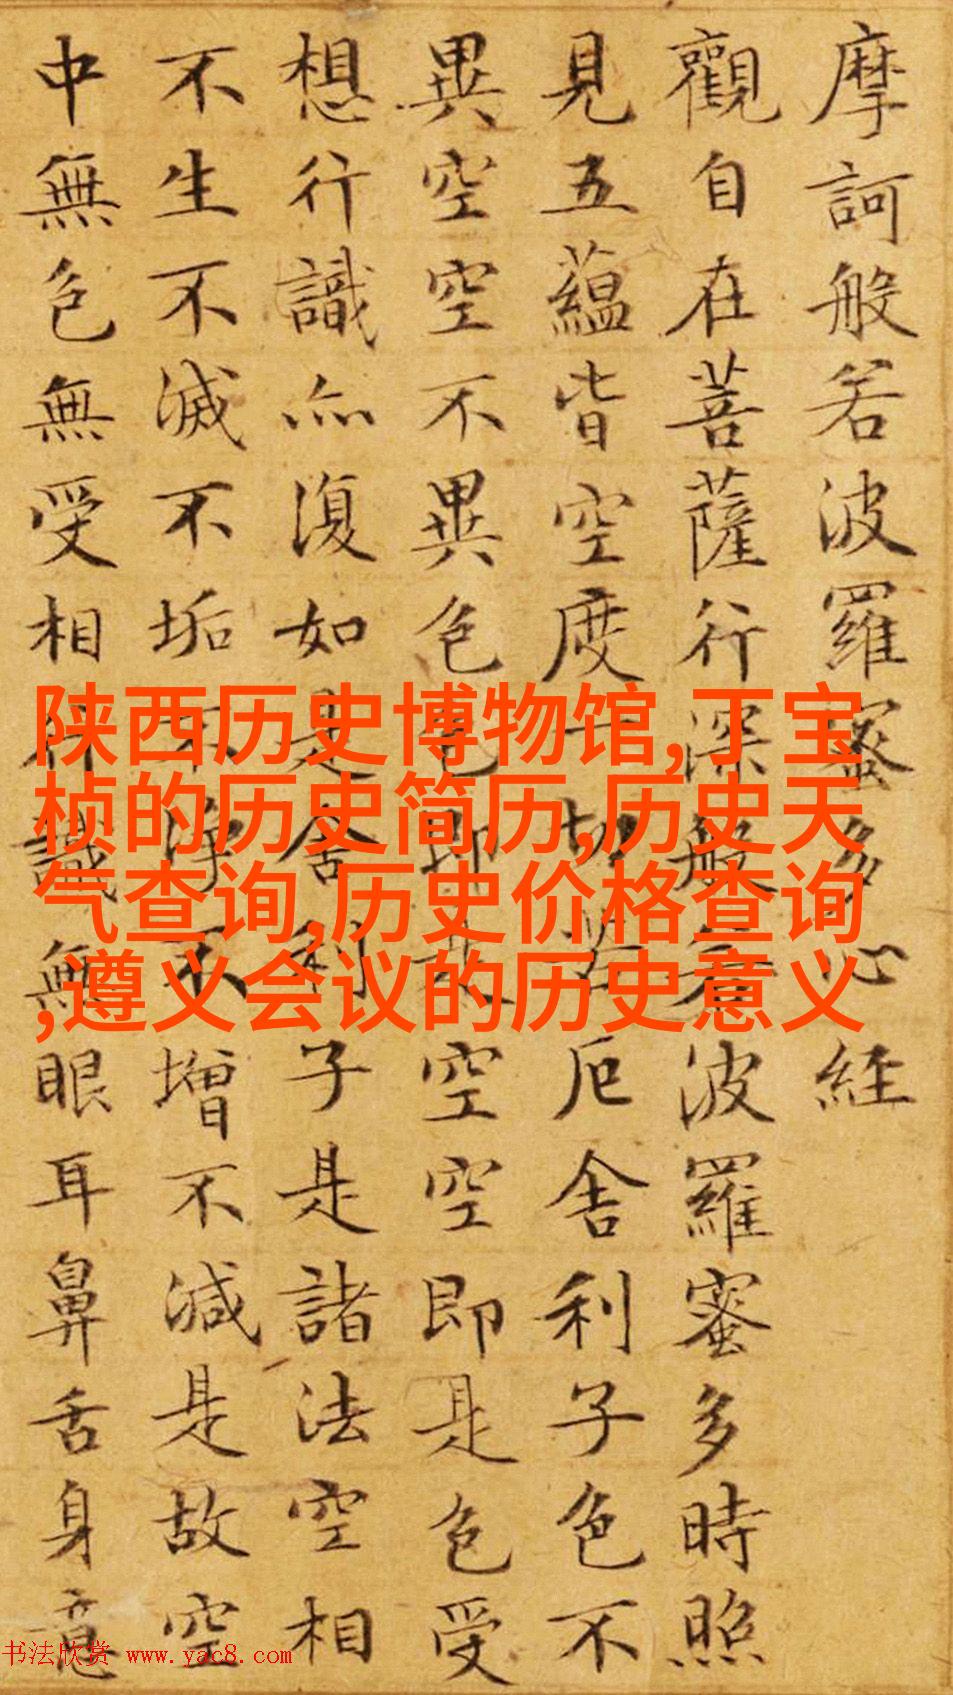 摩訶般若波羅蜜多心經
觀自在菩薩行深般若波羅蜜多時照
見五蘊皆空度一切苦厄舍利子色不
異空空不異色色即是空空即是色受
想行識亦復如是舍利子是諸法空相
不生不滅不垢不淨不增不減是故空
中無色無受相行識無眼耳鼻舌身意
陕西历史博物馆,丁宝
桢的历史简历,历史天
气查询,历史价格查询
,遵义会议的历史意义
书法欣赏 www.yac8.com